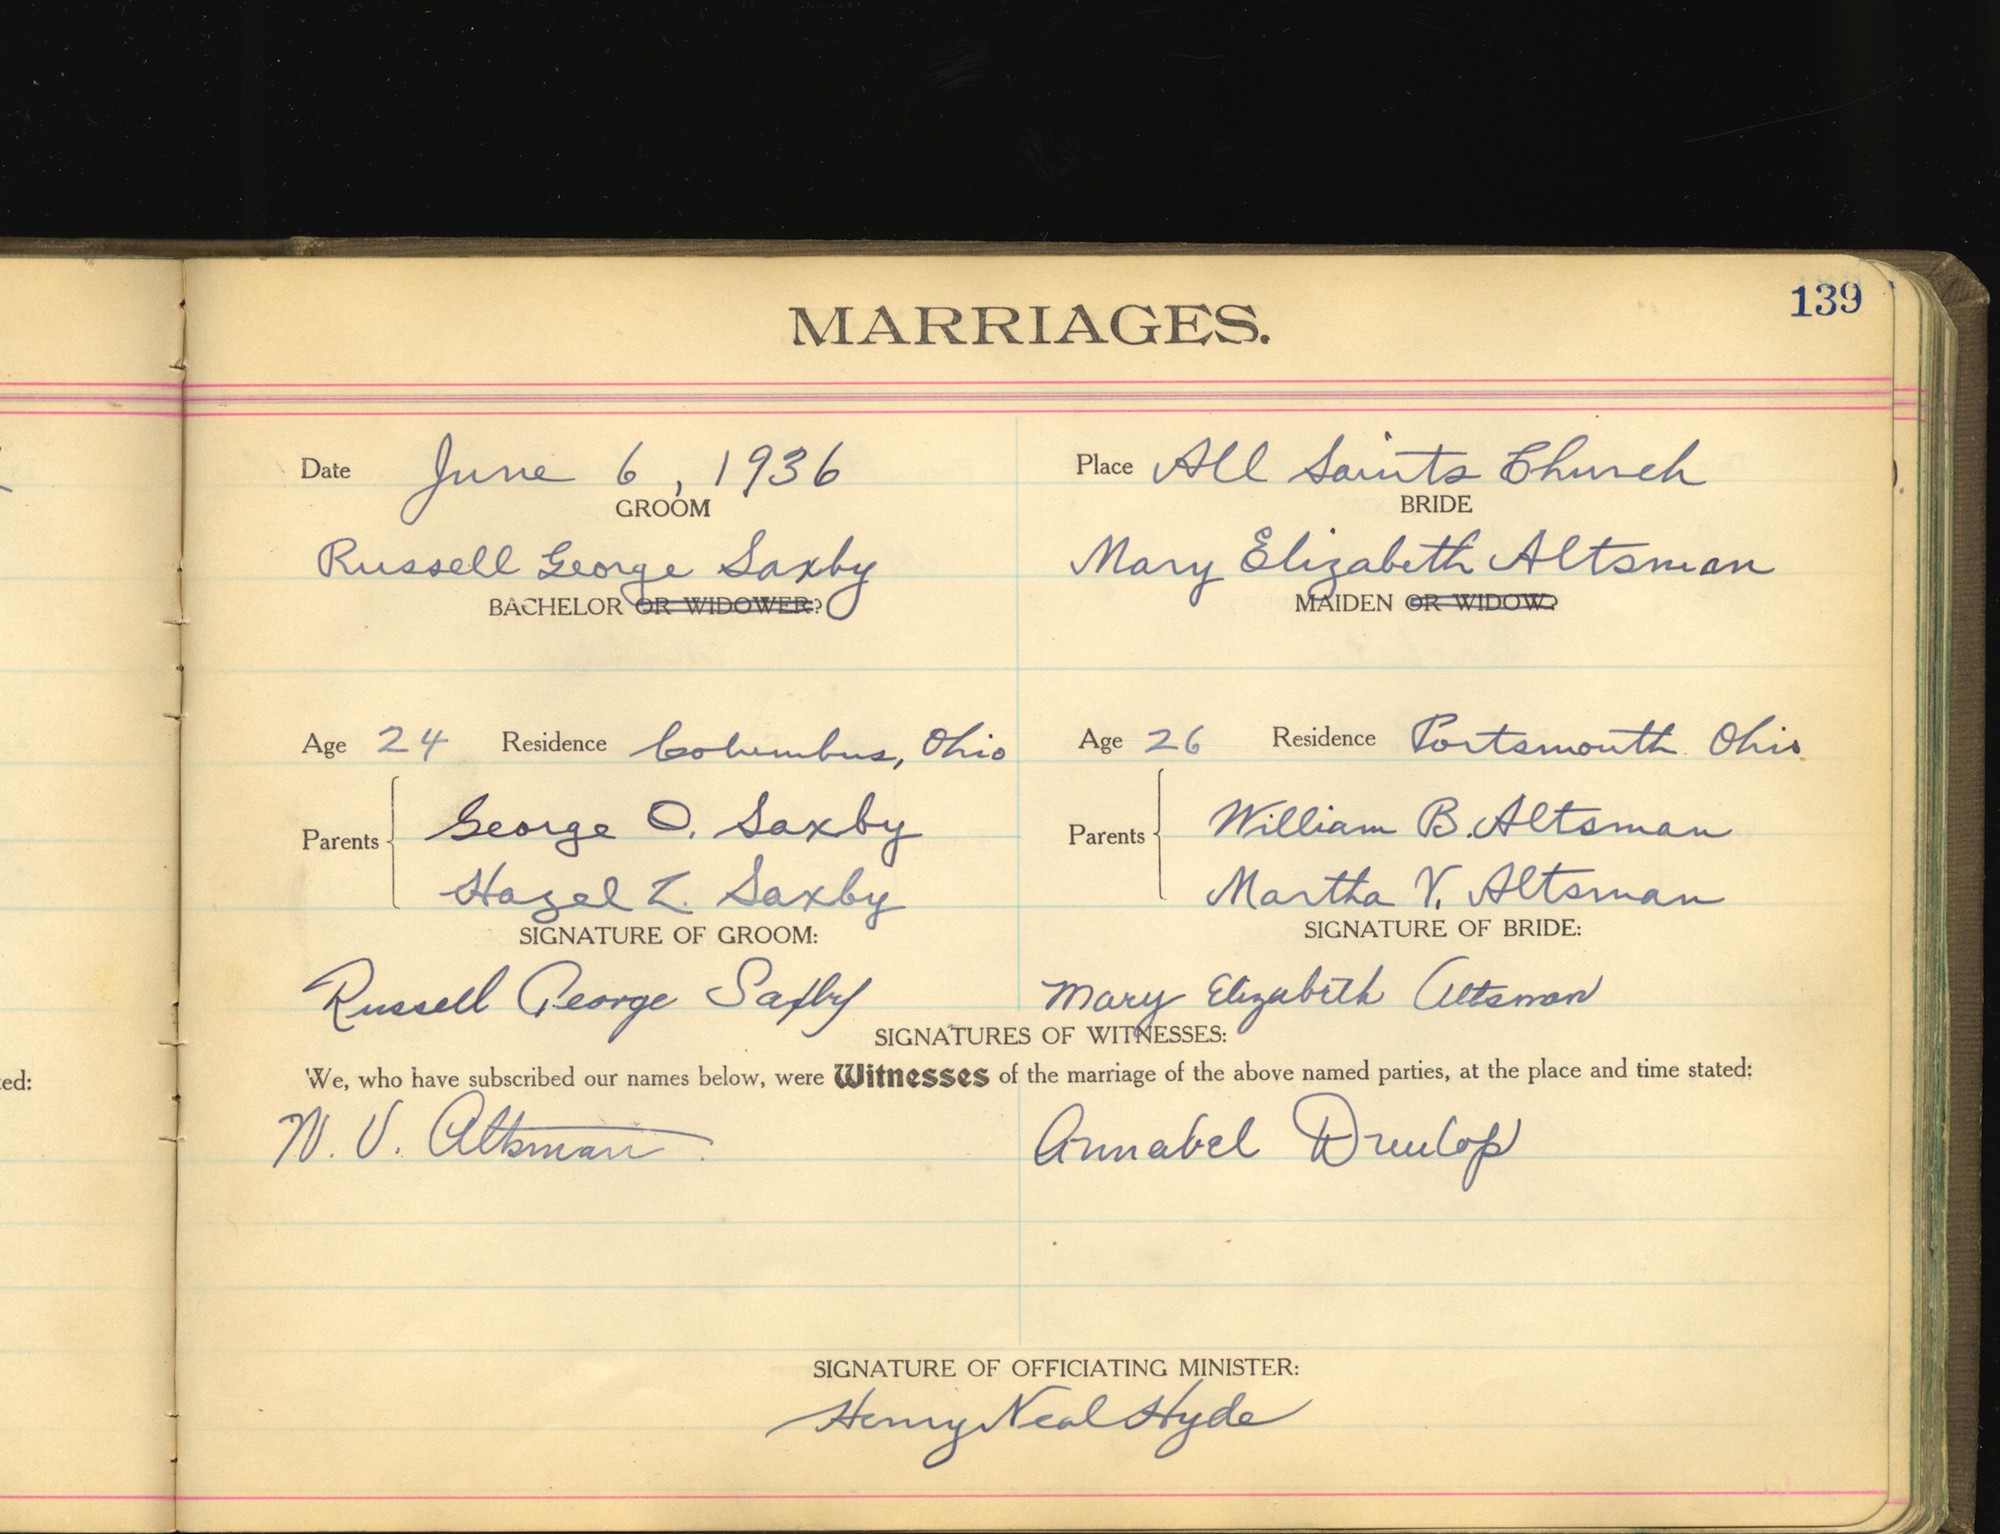 MARRIAGES.
139
Date June 6, 1936
Place All Saints Church
GROOM
BRIDE
Russell George Saxby
Mary Elizabeth Altsman
BACHELOR OR WIDOWER?
MAIDEN OR WIDOW?
Age 24 Residence Columbus, Ohio
Age 26 Residence Portsmouth Ohio
Parents
George O. Saxby
Hazel L. Saxby
Parents
William B. Altsman
Martha V. Altsman
SIGNATURE OF GROOM:
SIGNATURE OF BRIDE:
Russell George Saxby
Mary Elizabeth Altsman
SIGNATURES OF WITNESSES:
We, who have subscribed our names below, were Witnesses of the marriage of the above named parties, at the place and time stated:
ed:
V. Altsman
Annabel Dunlop
SIGNATURE OF OFFICIATING MINISTER:
Henry Neal Hyde